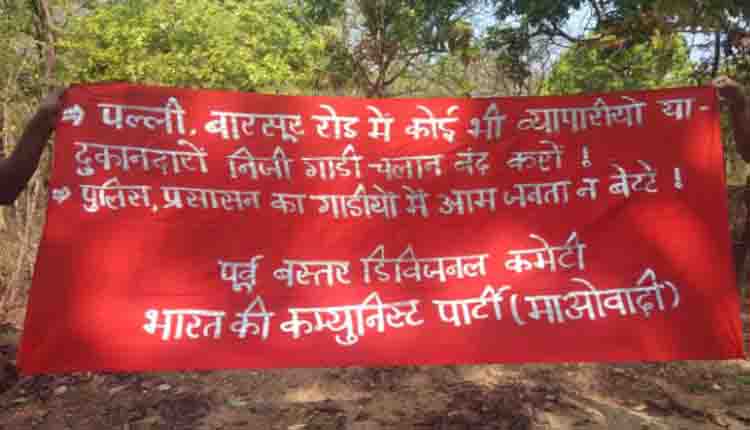 ⇒ पल्ली, बारसूर रोड में कोई भी व्यापारीयो या-
दुकानदारों निजी गाडी चलान बंद करों !
⇒ पुलिस, प्रसासन का गाडीयो में आम जनता न बेटटे !
पूर्व बस्तर डिविजनल कमेटी
भारत की कम्युनिस्ट पार्टी (माओवादी)